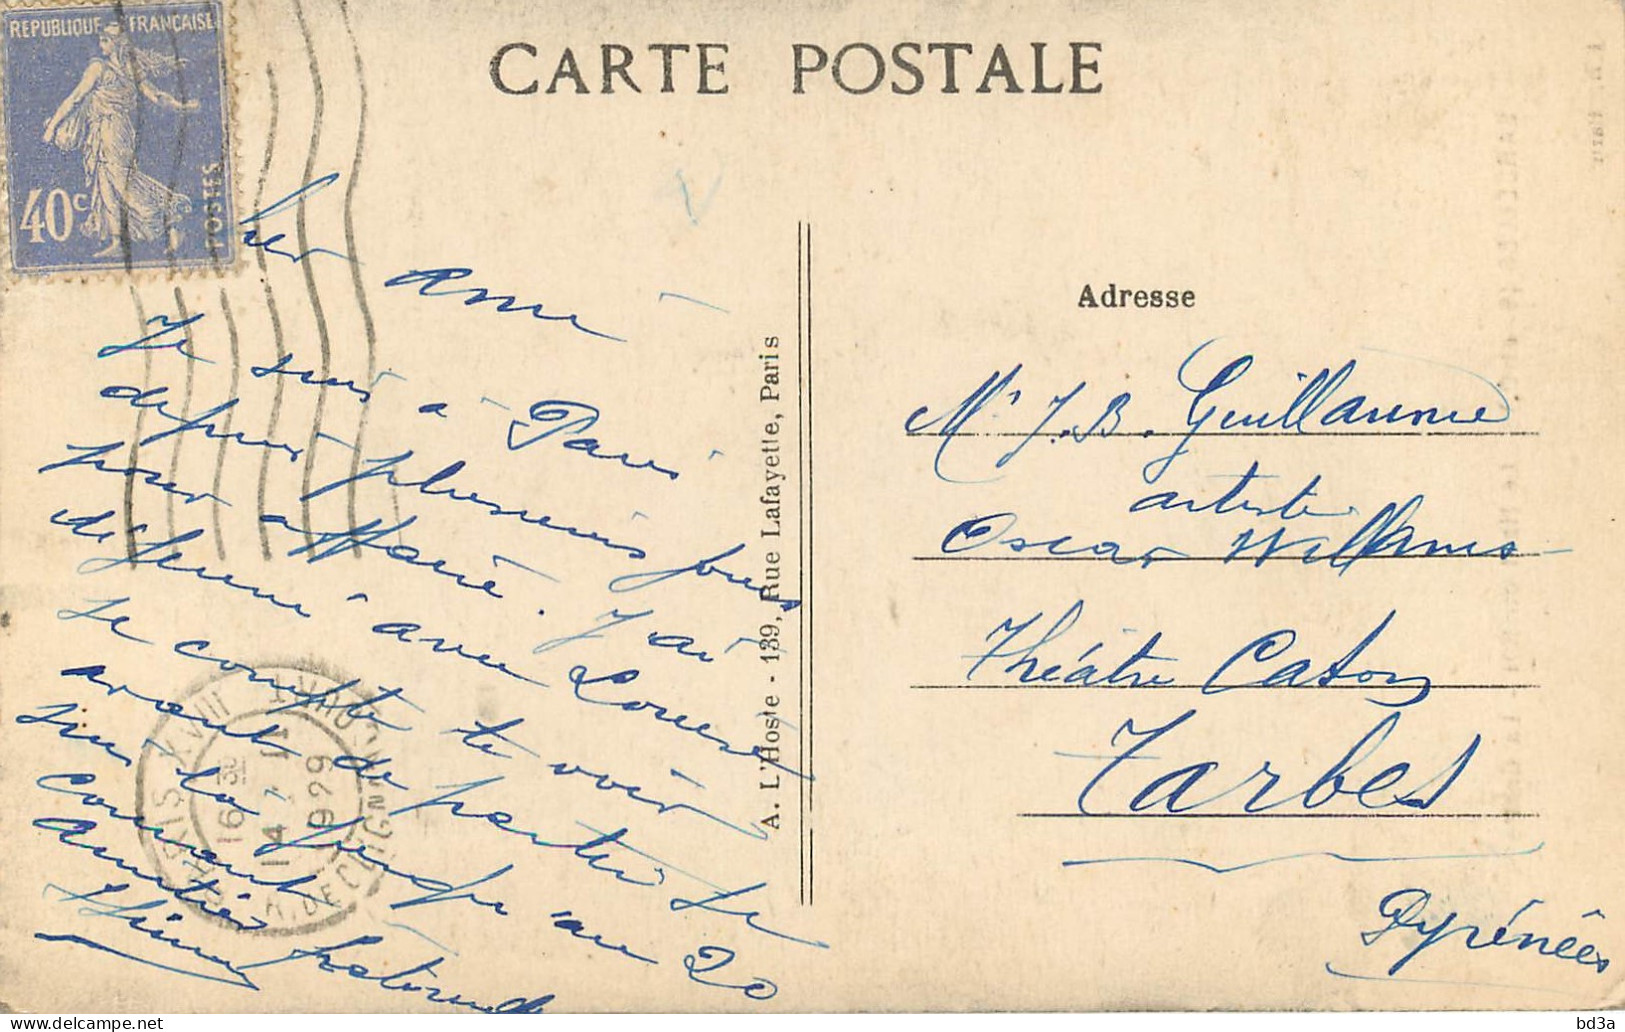 REPUBLIQUE FRANÇAISE
40c
POSTES
CARTE POSTALE
Cher ami
Je suis à Paris
depuis plusieurs jours
pour affaire. J'ai
déjeuné avec Louise
Je compte te voir
avant de partir Je
suis la jusqu'au 20
courant
Amitiés fraternelles
PARIS XVIII
16 30
14 - 11
1929
R. DE CLIGNANCOURT
A. L'Hoste - 139, Rue Lafayette, Paris
Adresse
Mr J. B. Guillaume
artiste
Oscar Williams
Théâtre Caton
Tarbes
Pyrénées
delcampe.net
bd3a